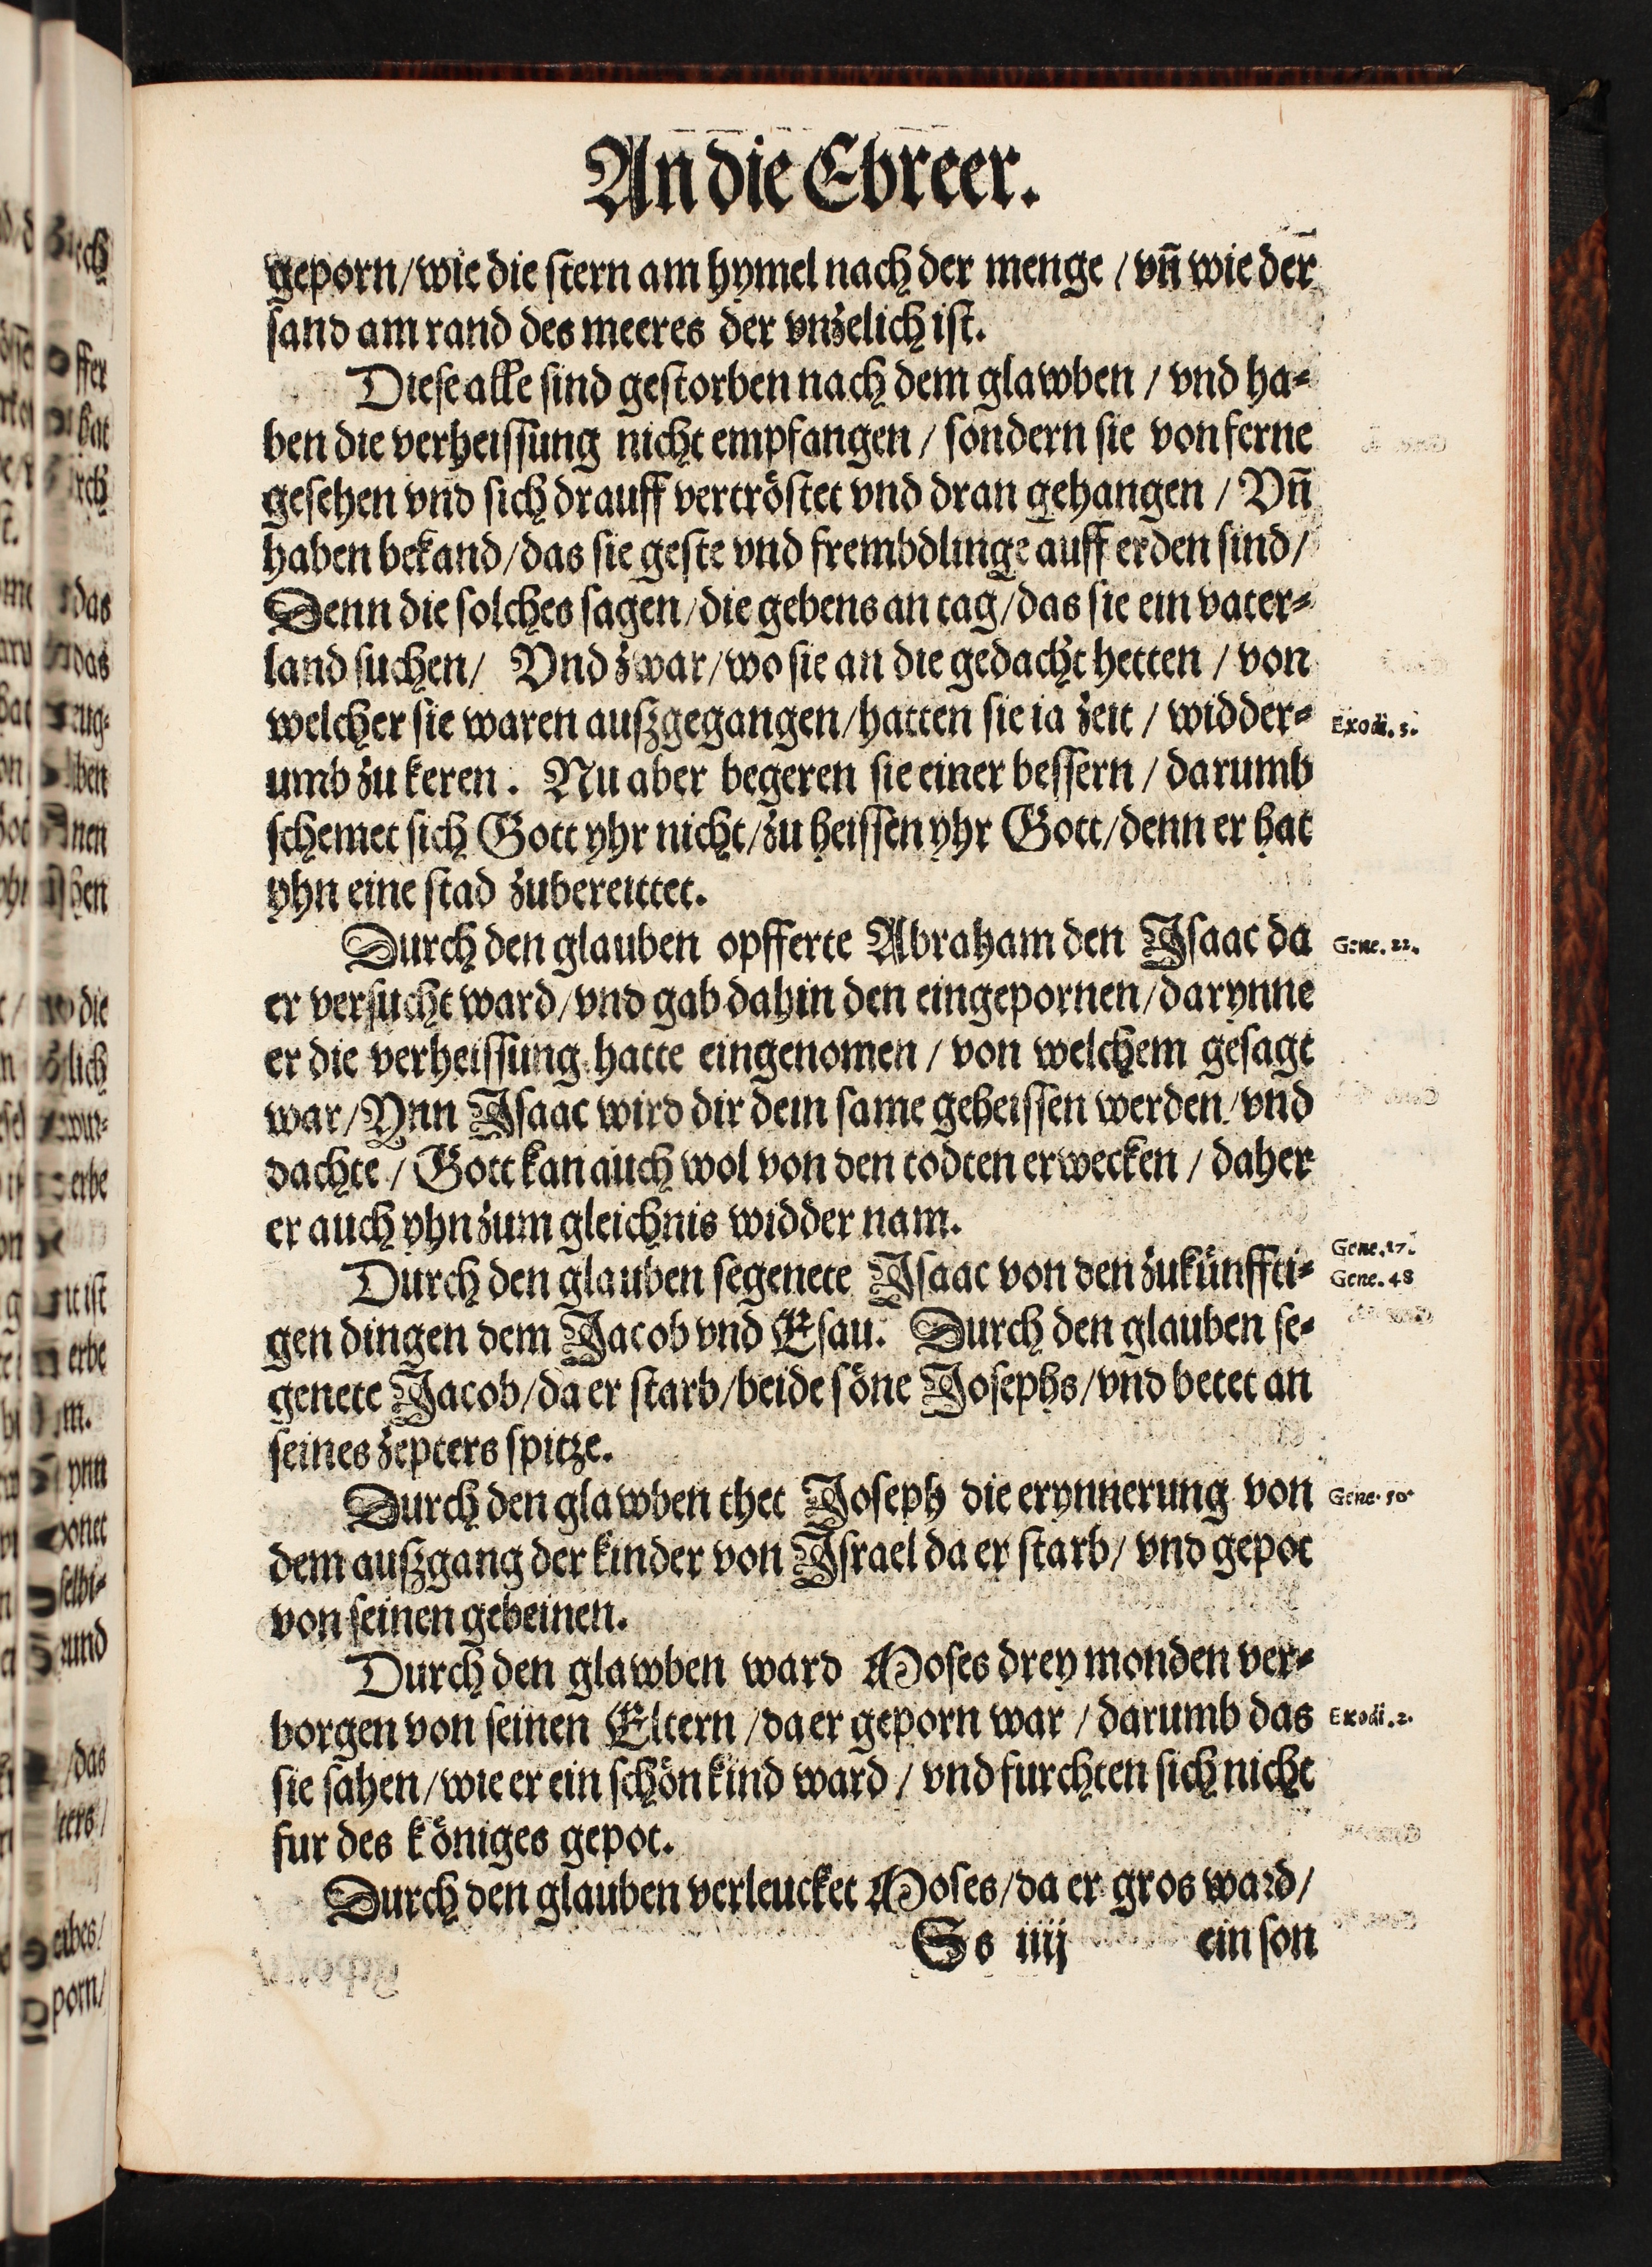 An die Ebreer.
geporn/wie die stern am hymel nach der menge / vñ wie der
sand am rand des meeres der vnzelich ist.
Diese alle sind gestorben nach dem glawben / vnd ha⸗
ben die verheissung nicht empfangen / sondern sie von ferne
gesehen vnd sich drauff vertröstet vnd dran gehangen / Vñ
haben bekand/das sie geste vnd frembdlinge auff erden sind/
Denn die solches sagen/die gebens an tag/das sie ein vater⸗
land suchen/ Vnd zwar/wo sie an die gedacht hetten / von
welcher sie waren außgegangen/hatten sie ia zeit / widder⸗
umb zu keren. Nu aber begeren sie einer bessern / darumb
schemet sich Gott yhr nicht/zu heissen yhr Gott/denn er hat
yhn eine stad zubereittet.
Exodi. 3.
Durch den glauben opfferte Abraham den Isaac da
Gene. 22.
er versucht ward/vnd gab dahin den eingepornen/darynne
er die verheissung hatte eingenomen / von welchem gesagt
war/Ynn Isaac wird dir dein same geheissen werden/vnd
dachte / Gott kan auch wol von den todten erwecken / daher
er auch yhn zum gleichnis widder nam.
Durch den glauben segenete Isaac von den zukünffti⸗
Gene. 27.
Gene. 48
gen dingen dem Jacob vnd Esau. Durch den glauben se⸗
genete Jacob/da er starb/beide söne Josephs/vnd betet an
seines zepters spitze.
Durch den glawben thet Joseph die erynnerung von
Gene. 50.
dem außgang der kinder von Israel da er starb/ vnd gepot
von seinen gebeinen.
Durch den glawben ward Moses drey monden ver⸗
borgen von seinen Eltern /da er geporn war / darumb das
Exodi. 2.
sie sahen/wie er ein schön kind ward / vnd furchten sich nicht
fur des königes gepot.
Durch den glauben verleucket Moses/da er gros ward/
Ss iiij ein son